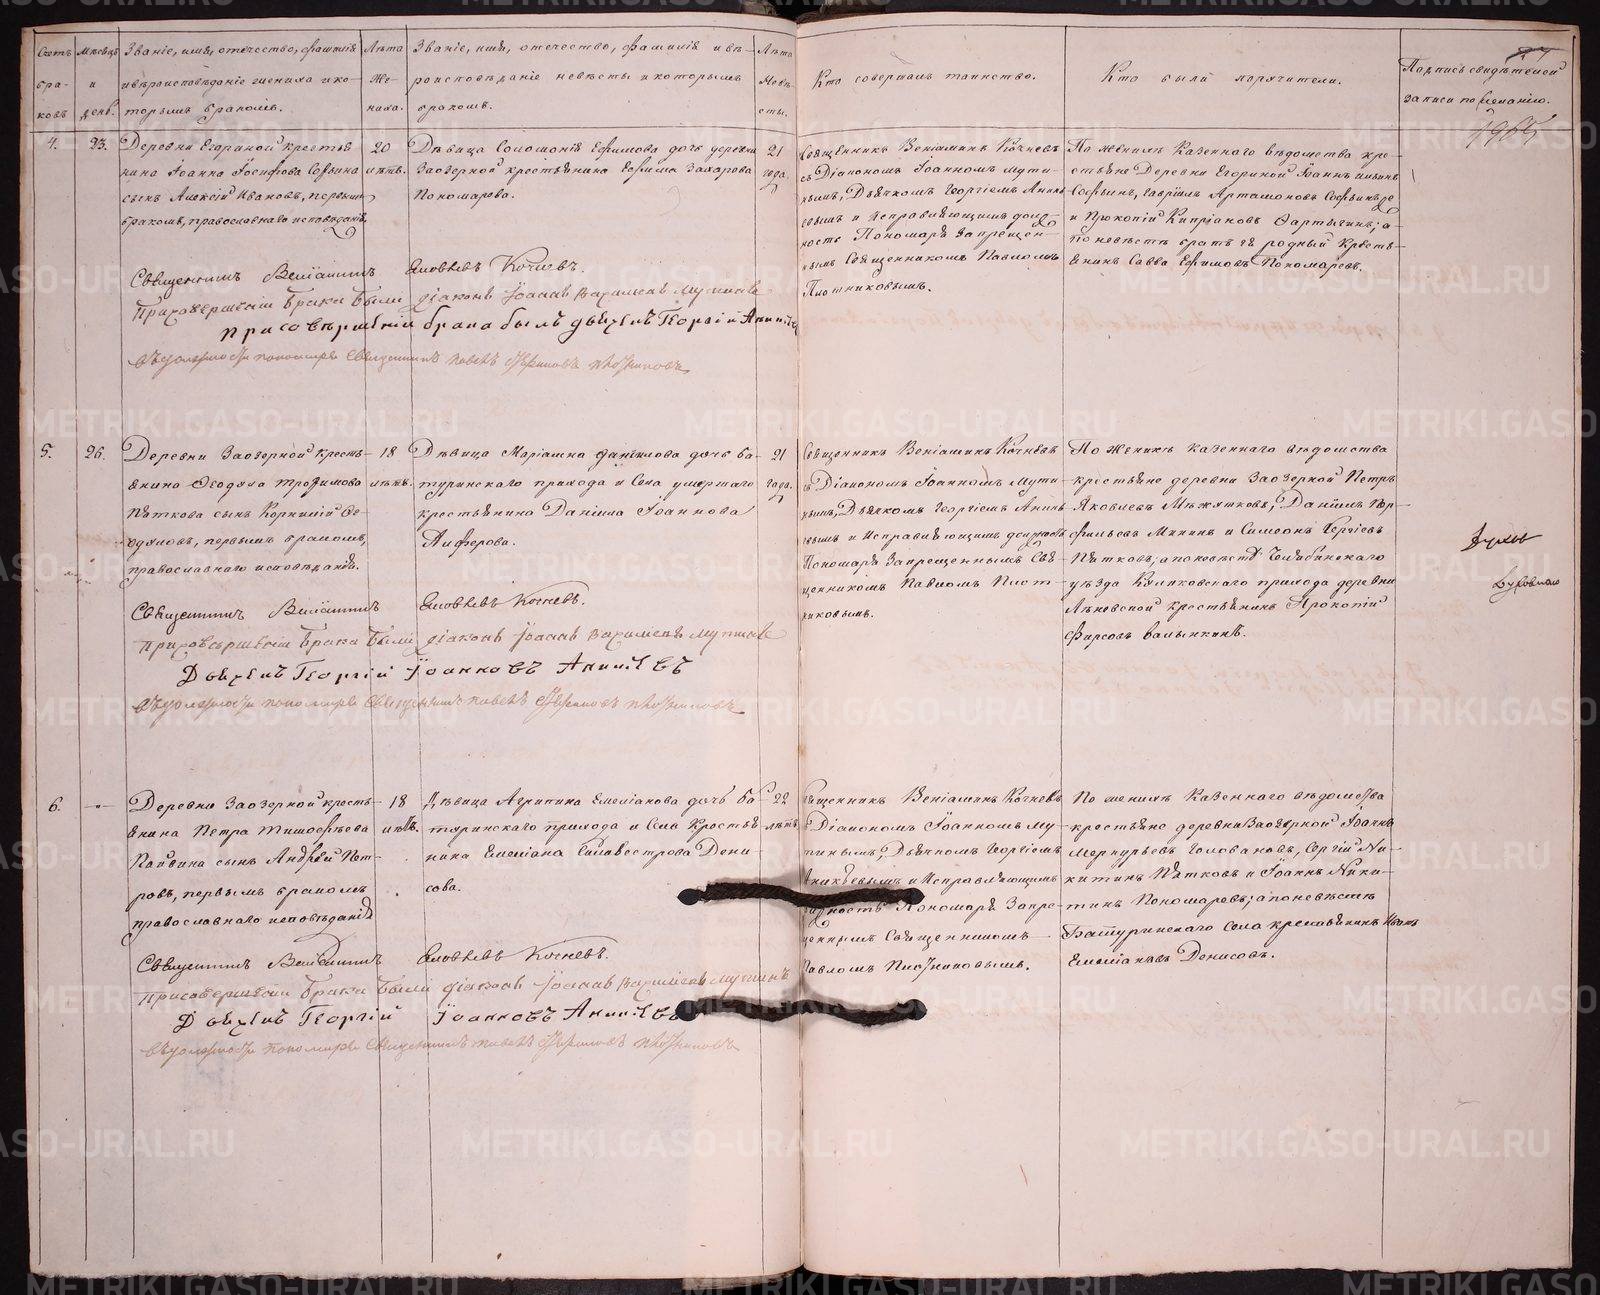 Счетъ бра-ковъ
Мѣсяцъ и день.
Званіе, имя, отечество, фамилія
и вѣроисповѣданіе жениха и ко-
торымъ бракомъ.
Лѣта Же-ниха.
Званіе, имя, отечество, фамилія и вѣ-
роисповѣданіе невѣсты и которымъ
бракомъ.
Лѣта Невѣ-сты.
Кто совершалъ таинство.
Кто были поручители.
Подпись свидѣтелей
записи по желанію.
4.
23.
Деревни Егориной крестья
нина Іоанна Іосифова Софьина
сынъ Алексій Ивановъ, первымъ
бракомъ, православнаго исповѣданія.
20
лѣтъ.
Дѣвица Соломонія Ефимова дочь деревни
Заозерной крестьянина Ефима Захарова
Пономарева.
21
года.
Священникъ Веніаминъ Кочневъ
съ Діакономъ Іоанномъ Мути-
нымъ, Дьячкомъ Георгіемъ Аники
евымъ и Исправляющимъ долж-
ность Пономаря Запрещен-
нымъ Священникомъ Павломъ
Плотниковымъ.
По женихѣ Казеннаго вѣдомства кре-
стьяне Деревни Егориной Іоаннъ
Софьинъ, Гавріилъ Артамоновъ Софьинъ
и Прокопій Кипріановъ а
по невѣстѣ братъ ея родный Кресть-
янинъ Савва Ефимовъ Пономаревъ.
Священникъ Веніаминъ Яковлевъ Кочневъ.
При совершеніи брака были діаконъ Іоаннъ Мутинъ
При совершеніи брака былъ дьячекъ Георгій Аникіевъ
въ должности пономаря Священникъ Павелъ Плотниковъ
5.
26.
Деревни Заозерной кресть-
янина Ѳеодула Трофимова
Пяткова сынъ Корнилій Ѳе-
одуловъ, первымъ бракомъ,
православнаго исповѣданія.
18
лѣтъ.
Дѣвица Маріамна Даніилова дочь Ба-
туринскаго прихода и Села умершаго
крестьянина Даніила Іоаннова
Алферова.
21
года.
Священникъ Веніаминъ Кочневъ
съ Діакономъ Іоанномъ Мути-
нымъ, Дьячкомъ Георгіемъ Аники
евымъ и Исправляющимъ должность
Пономаря Запрещеннымъ Свя-
щенникомъ Павломъ Плот-
никовымъ.
По Женихѣ казеннаго вѣдомства
крестьяне деревни Заозерной Петръ
Яковлевъ Даніилъ Пор-
фирьевъ Мининъ и Симеонъ Сергіевъ
Пятковъ; а по невѣстѣ Челябинскаго
уѣзда Куликовскаго прихода деревни
крестьянинъ Прокопій
Фирсовъ
Священникъ Веніаминъ Яковлевъ Кочневъ.
При совершеніи брака были діаконъ Іоаннъ Мутинъ
Дьячекъ Георгій Іоанновъ Аникіевъ
въ должности пономаря Священникъ Павелъ Плотниковъ
6.
-"-
Деревни Заозерной кресть-
янина Петра Тимофѣева
сынъ Андрей Пет-
ровъ, первымъ бракомъ
православнаго исповѣданія
18
лѣтъ.
Дѣвица Агрипина Емеліанова дочь Ба-
туринскаго прихода и Села Крестья
нина Емеліана Сильвестрова Дени-
сова.
22
лѣтъ
Священникъ Веніаминъ Кочневъ
съ Діакономъ Іоанномъ Му-
тинымъ, Дьячкомъ Георгіемъ
Аникіевымъ и Исправляющимъ
должность Пономаря Запре-
щеннымъ Священникомъ
Павломъ Плотниковымъ.
По женихѣ Казеннаго вѣдомства
крестьяне деревни Заозерной Іоаннъ
Меркурьевъ Головановъ, Сергій Ни-
китинъ Пятковъ и Іоаннъ Ники-
тинъ Пономаревъ; а по невѣстѣ
Батуринскаго Села крестьянинъ Иванъ
Емеліановъ Денисовъ.
Священникъ Веніаминъ Яковлевъ Кочневъ.
При совершеніи брака были діаконъ Іоаннъ Мутинъ
Дьячекъ Георгій Іоанновъ Аникіевъ
въ должности пономаря Священникъ Павелъ Плотниковъ
METRIKI.GASO-URAL.RU